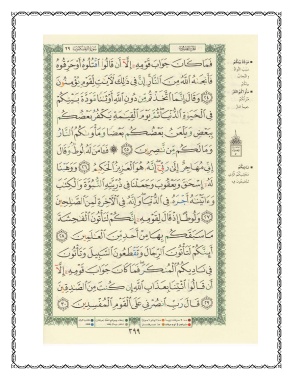 سورة العنكبوت
فَمَا كَانَ جَوَابَ قَوْمِهِ إِلَّا أَن قَالُوا اقْتُلُوهُ أَوْ حَرِّقُوهُ
فَأَنجَاهُ اللَّهُ مِنَ النَّارِ إِنَّ فِي ذَٰلِكَ لَآيَاتٍ لِّقَوْمٍ يُؤْمِنُونَ
٢٤ وَقَالَ إِنَّمَا اتَّخَذْتُم مِّن دُونِ اللَّهِ أَوْثَانًا مَّوَدَّةَ بَيْنِكُمْ
فِي الْحَيَاةِ الدُّنْيَا ثُمَّ يَوْمَ الْقِيَامَةِ يَكْفُرُ بَعْضُكُم
بِبَعْضٍ وَيَلْعَنُ بَعْضُكُم بَعْضًا وَمَأْوَاكُمُ النَّارُ
وَمَا لَكُم مِّن نَّاصِرِينَ ٢٥ ۞ فَآمَنَ لَهُ لُوطٌ وَقَالَ
إِنِّي مُهَاجِرٌ إِلَىٰ رَبِّي إِنَّهُ هُوَ الْعَزِيزُ الْحَكِيمُ ٢٦ وَوَهَبْنَا
لَهُ إِسْحَاقَ وَيَعْقُوبَ وَجَعَلْنَا فِي ذُرِّيَّتِهِ النُّبُوَّةَ وَالْكِتَابَ
وَآتَيْنَاهُ أَجْرَهُ فِي الدُّنْيَا وَإِنَّهُ فِي الْآخِرَةِ لَمِنَ الصَّالِحِينَ
٢٧ وَلُوطًا إِذْ قَالَ لِقَوْمِهِ إِنَّكُمْ لَتَأْتُونَ الْفَاحِشَةَ
مَا سَبَقَكُم بِهَا مِنْ أَحَدٍ مِّنَ الْعَالَمِينَ ٢٨
أَئِنَّكُمْ لَتَأْتُونَ الرِّجَالَ وَتَقْطَعُونَ السَّبِيلَ وَتَأْتُونَ
فِي نَادِيكُمُ الْمُنكَرَ فَمَا كَانَ جَوَابَ قَوْمِهِ إِلَّا
أَن قَالُوا ائْتِنَا بِعَذَابِ اللَّهِ إِن كُنتَ مِنَ الصَّادِقِينَ
٢٩ قَالَ رَبِّ انصُرْنِي عَلَى الْقَوْمِ الْمُفْسِدِينَ ٣٠
٣٩٩